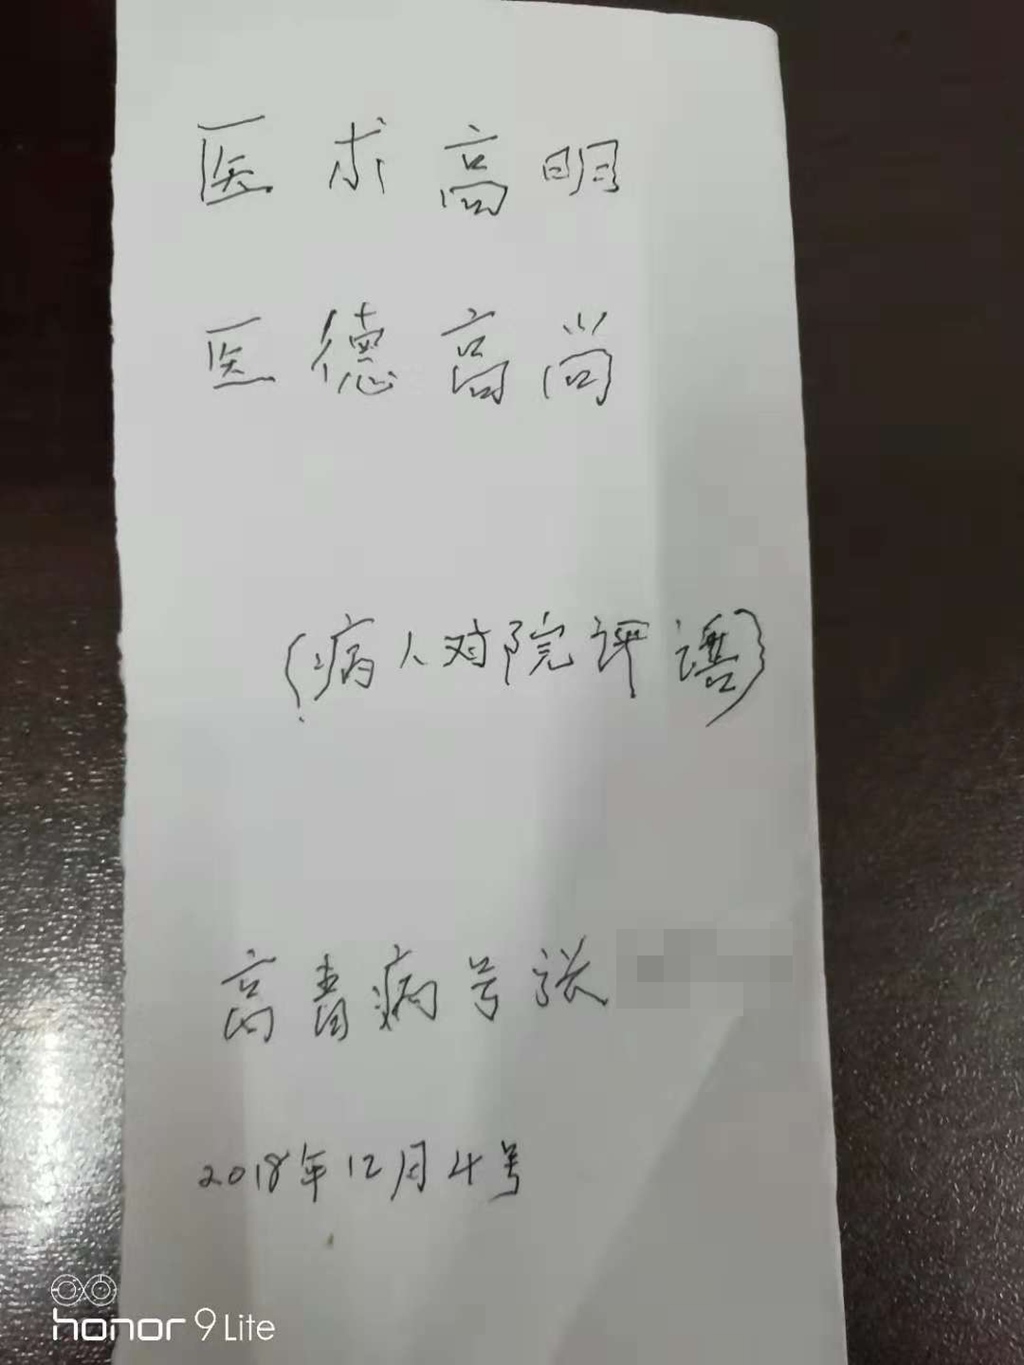 医术高明
医德高尚
(病人对院评语)
高青病号张
2018年12月4号
honor 9 Lite